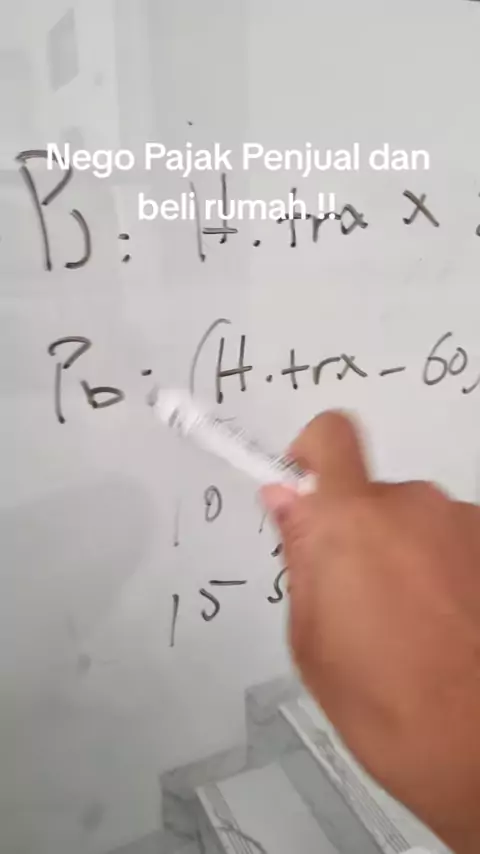 Nego Pajak Penjual dan
beli rumah !!
Pj : H. trx x
Pb : (H. trx - 60,
10
15 5